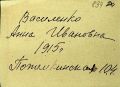 Василенко
Анна Ивановна
1915г
Потемкинская 104